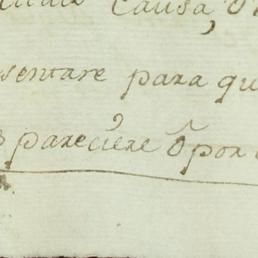 causa, o
sentare para qu
pareciere o por